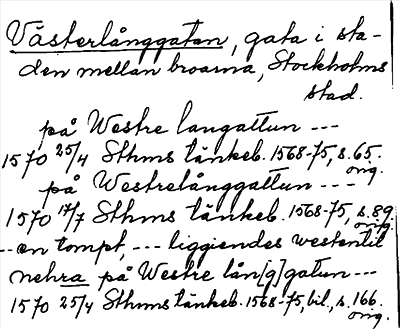 Västerlånggatan, gata i sta-
den mellan broarna, Stockholms
stad.
på Westre langattun ---
1570 25/4 Sthms tänkeb. 1568-75, s. 65.
orig.
på Westrelånggattun ---
1570 17/7 Sthms tänkeb. 1568-75, s. 89.
orig.
--en tompt, --- liggiendes westentil
nehra på Westre lån[g]gatun---
1570 25/4 Sthms tänkeb. 1568-75, bil., s. 166.
orig.